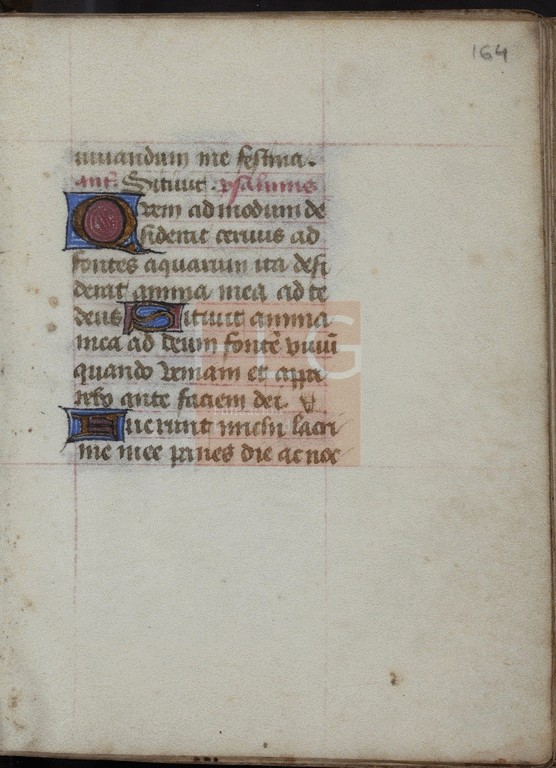 164
iuuandum me festina.
ant. Sitiuit. psalmus
Quem ad modum de
siderat ceruus ad
fontes aquarum ita desi
derat anima mea ad te
deus Sitiuit anima
mea ad deum fontē viuū
quando veniam et appa
rebo ante faciem dei. V
Fuerunt michi lacri
me mee panes die ac noc